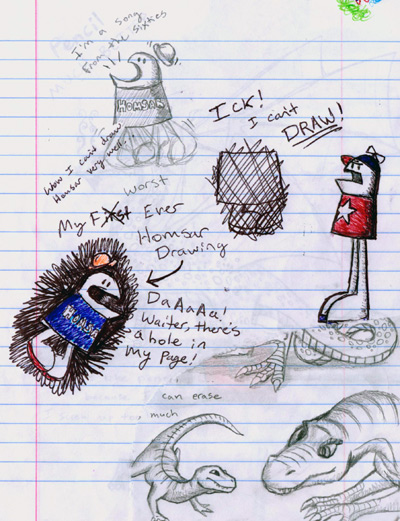 I'm a song
From the sixties
HOMSAR
Wow I can't draw
Homsar very well!
Ick!
I can't
DRAW!
worst
My First Ever
Homsar
Drawing
HOMSAR
DaAaAa!
Waiter, there's
a hole in
My Page!
can erase
much